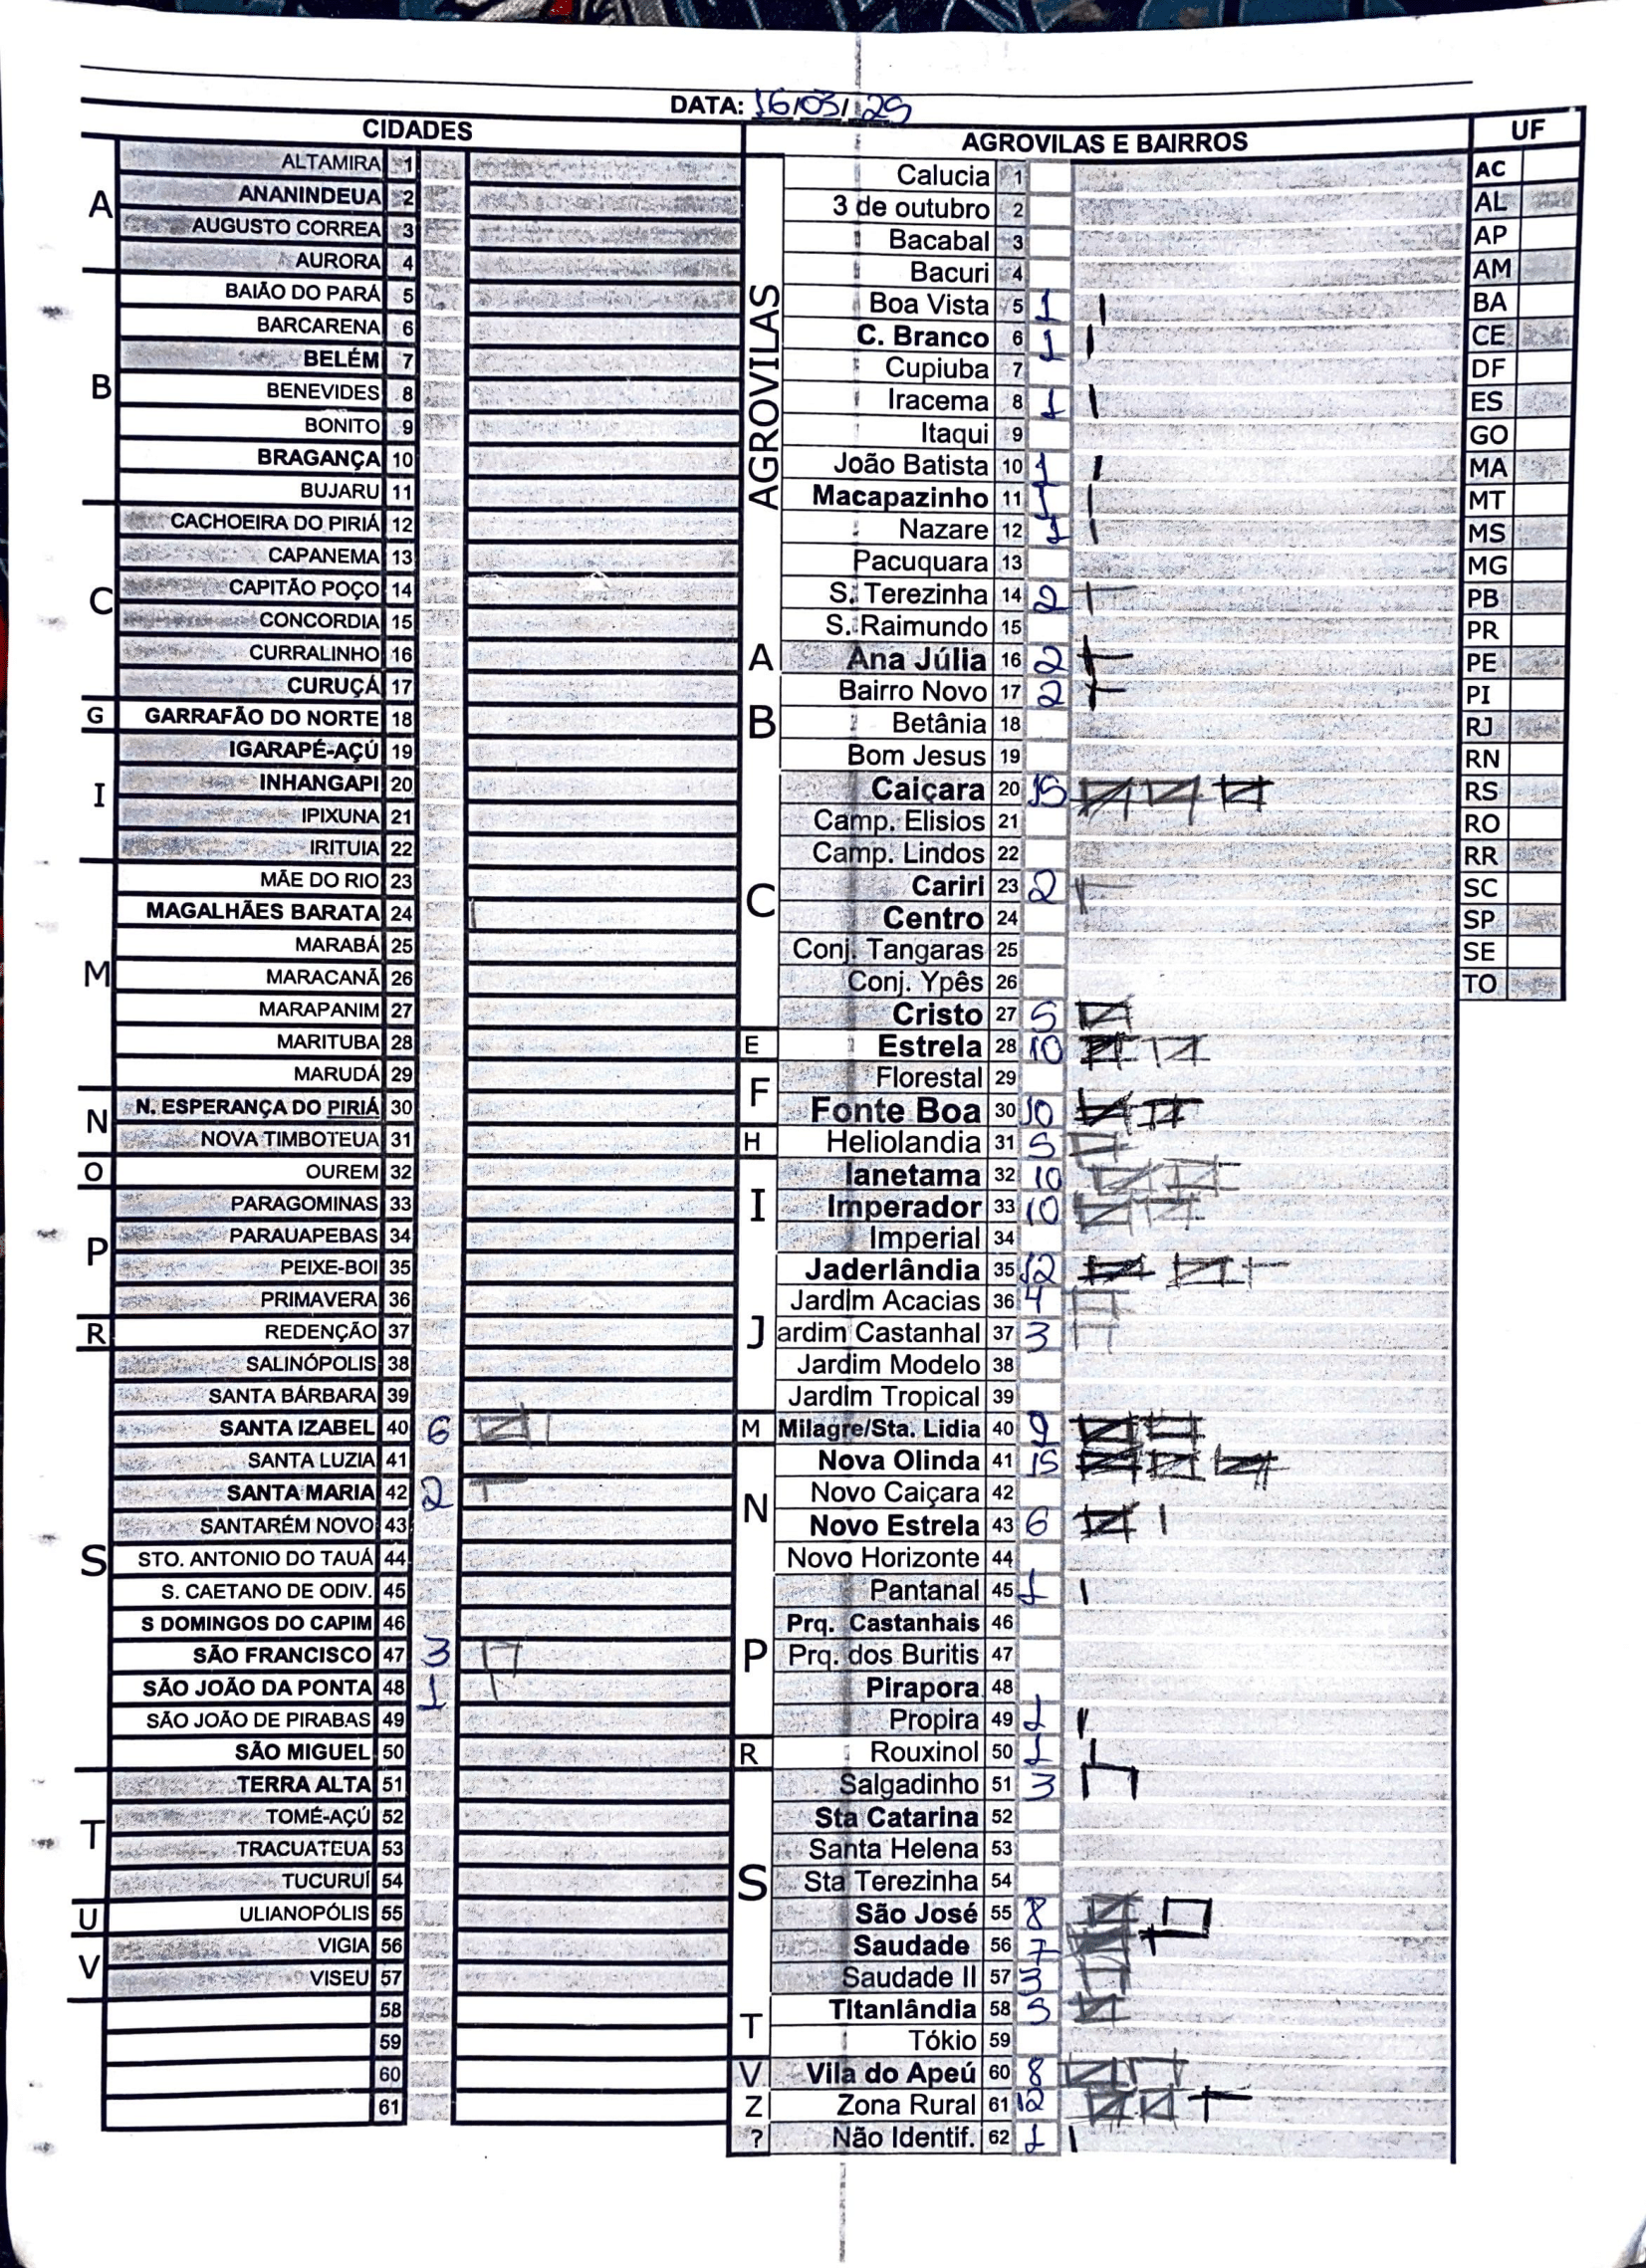 DATA: 16/03/25
CIDADES
A
ALTAMIRA 1
ANANINDEUA 2
AUGUSTO CORREA 3
AURORA 4
B
BAIÃO DO PARÁ 5
BARCARENA 6
BELÉM 7
BENEVIDES 8
BONITO 9
BRAGANÇA 10
BUJARU 11
C
CACHOEIRA DO PIRIÁ 12
CAPANEMA 13
CAPITÃO POÇO 14
CONCORDIA 15
CURRALINHO 16
CURUÇÁ 17
G
GARRAFÃO DO NORTE 18
I
IGARAPÉ-AÇÚ 19
INHANGAPI 20
IPIXUNA 21
IRITUIA 22
M
MÃE DO RIO 23
MAGALHÃES BARATA 24
MARABÁ 25
MARACANÃ 26
MARAPANIM 27
MARITUBA 28
MARUDÁ 29
N
N. ESPERANÇA DO PIRIÁ 30
NOVA TIMBOTEUA 31
O
OUREM 32
P
PARAGOMINAS 33
PARAUAPEBAS 34
PEIXE-BOI 35
PRIMAVERA 36
R
REDENÇÃO 37
S
SALINÓPOLIS 38
SANTA BÁRBARA 39
SANTA IZABEL 40 6
SANTA LUZIA 41
SANTA MARIA 42 2
SANTARÉM NOVO 43
STO. ANTONIO DO TAUÁ 44
S. CAETANO DE ODIV. 45
S DOMINGOS DO CAPIM 46
SÃO FRANCISCO 47 3
SÃO JOÃO DA PONTA 48 1
SÃO JOÃO DE PIRABAS 49
SÃO MIGUEL 50
T
TERRA ALTA 51
TOMÉ-AÇÚ 52
TRACUATEUA 53
TUCURUÍ 54
U
ULIANOPÓLIS 55
V
VIGIA 56
VISEU 57
58
59
60
61
AGROVILAS E BAIRROS
AGROVILAS
Calucia 1
3 de outubro 2
Bacabal 3
Bacuri 4
Boa Vista 5 1
C. Branco 6 1
Cupiuba 7
Iracema 8 1
Itaqui 9
João Batista 10 1
Macapazinho 11 1
Nazare 12 1
Pacuquara 13
S. Terezinha 14 2
S. Raimundo 15
A
Ana Júlia 16 2
B
Bairro Novo 17 2
Betânia 18
Bom Jesus 19
C
Caiçara 20 15
Camp. Elisios 21
Camp. Lindos 22
Cariri 23 2
Centro 24
Conj. Tangaras 25
Conj. Ypês 26
Cristo 27 5
E
Estrela 28 10
F
Florestal 29
Fonte Boa 30 10
H
Heliolandia 31 5
I
Ianetama 32 10
Imperador 33 10
Imperial 34
J
Jaderlândia 35 12
Jardim Acacias 36 4
ardim Castanhal 37 3
Jardim Modelo 38
Jardim Tropical 39
M
Milagre/Sta. Lidia 40 9
N
Nova Olinda 41 15
Novo Caiçara 42
Novo Estrela 43 6
Novo Horizonte 44
P
Pantanal 45 1
Prq. Castanhais 46
Prq. dos Buritis 47
Pirapora 48
Propira 49 1
R
Rouxinol 50 1
S
Salgadinho 51 3
Sta Catarina 52
Santa Helena 53
Sta Terezinha 54
São José 55 8
Saudade 56 7
Saudade II 57 3
T
Titanlândia 58 5
Tókio 59
V
Vila do Apeú 60 8
Z
Zona Rural 61 12
?
Não Identif. 62 1
UF
AC
AL
AP
AM
BA
CE
DF
ES
GO
MA
MT
MS
MG
PB
PR
PE
PI
RJ
RN
RS
RO
RR
SC
SP
SE
TO